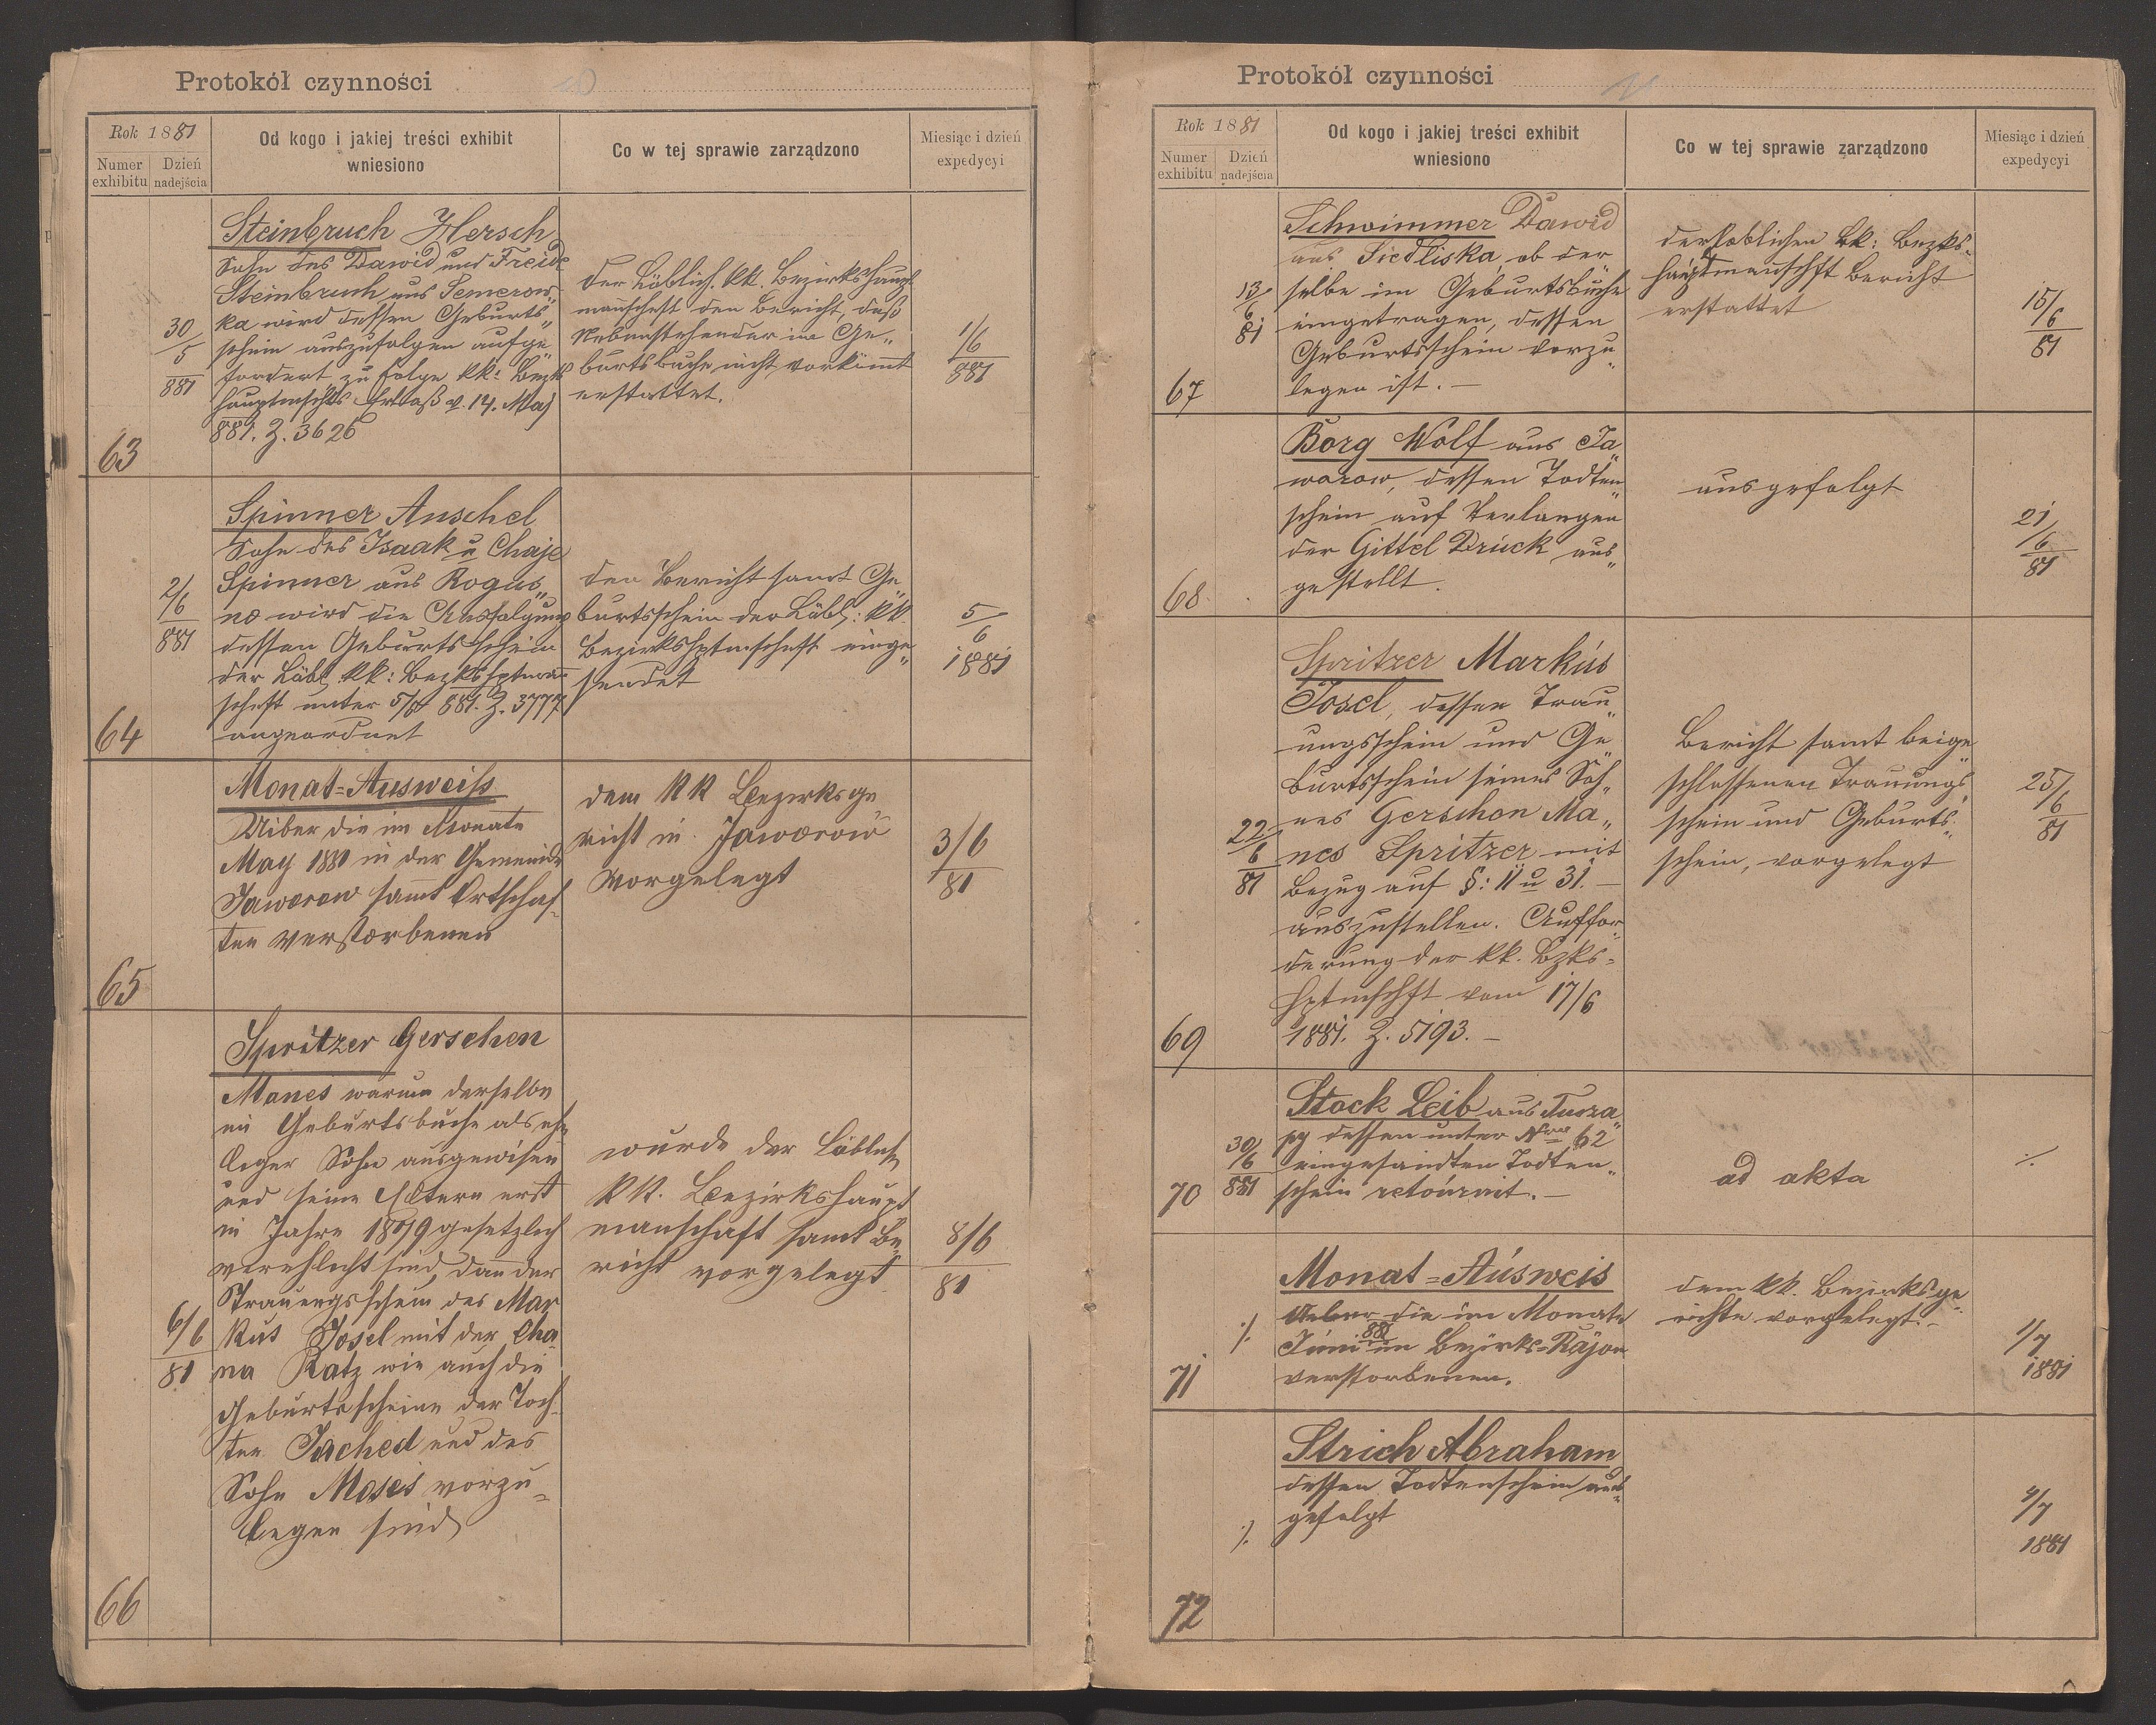 Protokół czynności
Rok 1881
Numer exhibitu
Dzień nadejścia
Od kogo i jakiej treści exhibit wniesiono
Co w tej sprawie zarządzono
Miesiąc i dzień expedycyi
63
30/5 881
Steinbruch Hersch
Sohn des Dawid und Freide
Steinbruch aus Semerow„
ka wird dessen Geburts„
schein auszufolgen aufge„
fordert zu folge kk: Bezks
hauptmschfts Erlaß v. 14. Maj
881. Z. 3626
der Löblich. kk. Bezirkshaupt
manschaft den Bericht, daß
Nebenstehender im Ge„
burtsbuche nicht vorkommt
erstattet.
1/6 881
64
2/6 881
Spinner Anschel
Sohn des Isaak u Chaje
Spinner aus Rogus„
no wird die Ausfolgung
dessen Geburtsschein
der Löbl. kk: Bezkshptman
schaft unter 881. Z. 3777
angeordnet
den Bericht samt Ge„
burtsschein der Löbl: kk.
Bezirkshptmschaft einge„
sendet
5/6 1881
65
Monat=Ausweiss
Uiber die im Monate
May 1881 in der Gemeinde
Jaworow sammt Ortschaf„
ten verstorbenen
dem KK Bezirksge
richt in Jaworow
vorgelegt
3/6 81
66
6/6 81
Spritzer Gerschen
Manes warum derselbe
im Geburtsbuche als ehe
licher Sohn ausgewisen
und seine Eltern erst
in Jahre 1879 gesetzlich
verehlicht sind, dan der
Trauungsschein des Mar
kus Josel mit der Cha
na Katz wie auch die
Geburtsscheine der Toch
ter Jached und des
Sohn Moses vorzu=
legen sind
wurde der Löblich
KK. Bezirkshaupt
manschaft samt Be
richt vorgelegt
8/6 81
Protokół czynności
Rok 1881
Numer exhibitu
Dzień nadejścia
Od kogo i jakiej treści exhibit wniesiono
Co w tej sprawie zarządzono
Miesiąc i dzień expedycyi
67
13/6 81
Schwimmer Dawid
aus Siedliska, ob der
selbe im Geburtsbuche
eingetragen, dessen
Geburtsschein vorzu„
legen ist. —
der löblichen kk: Bezks.
hauptmanschft Bericht
erstattet
15/6 81
68
Borg Wolf aus Ja„
worow, dessen Todten„
schein auf Verlangen
der Gittel Drück aus„
gestellt.
ausgefolgt
21/6 81
69
22/6 81
Spritzer Markús
Josel, dessen Trau„
ungsschein und Ge„
burtsschein seines Soh„
nes Gerschon Ma„
nes Spritzer mit
Bezug auf §: 11 u 31. —
auszustellen. Auffor„
derung der kk. Bzks=
hptmschft vom 17/6
1881. Z. 5193. —
Bericht samt beige„
schlossenen Trauungs„
schein und Geburts„
schein, vorgelegt
25/6 81
70
30/6 881
Stock Leib aus Tusza„
pg dessen unter Nro 62
eingesandten Todten„
schein retourirt. —
ad akta
./.
71
./.
Monat=Aúsweis
Ueber die im Monate
Juni 881 im Bezirks=Rajon
verstorbenen.
dem kk. Bezirksge„
richte vorgelegt. —
1/7 1881
72
./.
Strich Abraham
dessen Todtenschein aus„
gefolgt
4/7 1881